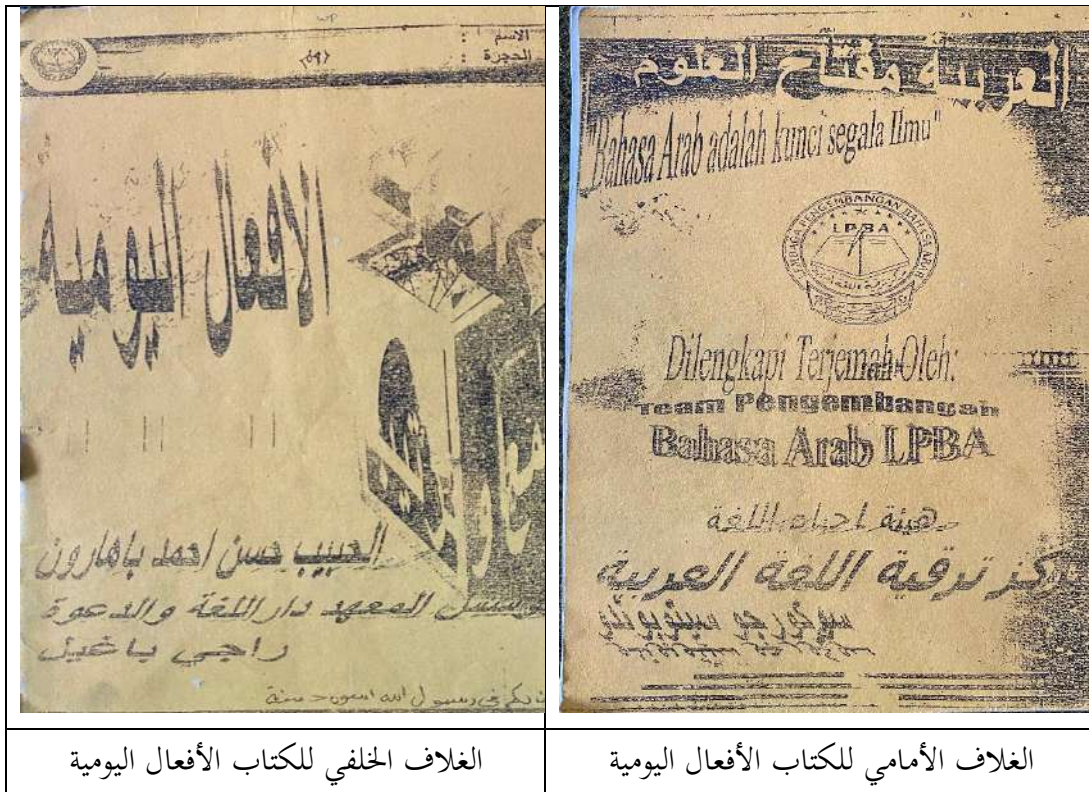 العربية مفتاح العلوم
"Bahasa Arab adalah kunci segala Ilmu"
LEMBAGA PENGEMBANGAN BAHASA ARAB
LPBA
Dilengkapi Terjemah Oleh:
Team Pengembangan
Bahasa Arab LPBA
هيئة احياء اللغة
مركز ترقية اللغة العربية
الغلاف الأمامي للكتاب الأفعال اليومية
الاسم :
الحجرة :
الأفعال اليومية
الحبيب حسن احمد باهارون
مؤسس المعهد دار اللغة والدعوة
راجي باغيل
رسول الله اسوة حسنة
الغلاف الخلفي للكتاب الأفعال اليومية